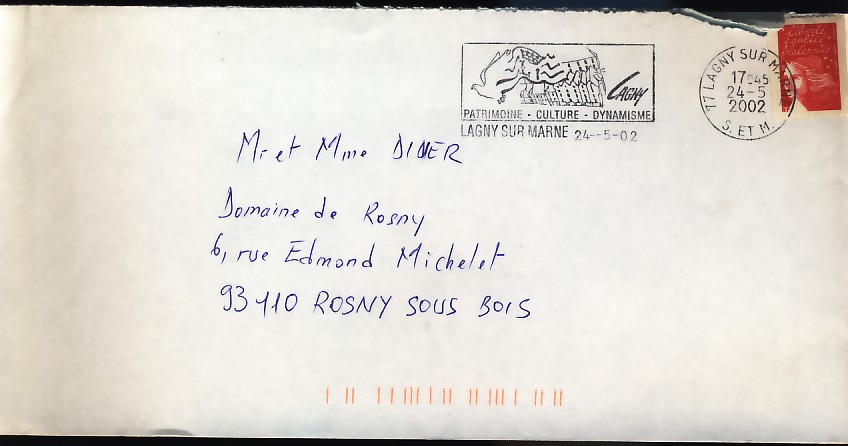 liberté
égalité
fraternité
LAGNY
PATRIMOINE - CULTURE - DYNAMISME
LAGNY SUR MARNE 24--5-02
77 LAGNY SUR MARNE
17H45
24-5
2002
S. ET M.
Mr et Mme
Domaine de Rosny
6, rue Edmond Michelet
93110 ROSNY SOUS BOIS